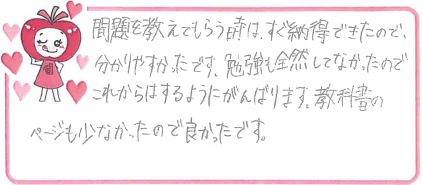 問題を教えてもらう時は、すぐ納得できたので、
分かりやすかったです。勉強も全然してなかったので
これからはするようにがんばります。教科書の
ページも少なかったので良かったです。